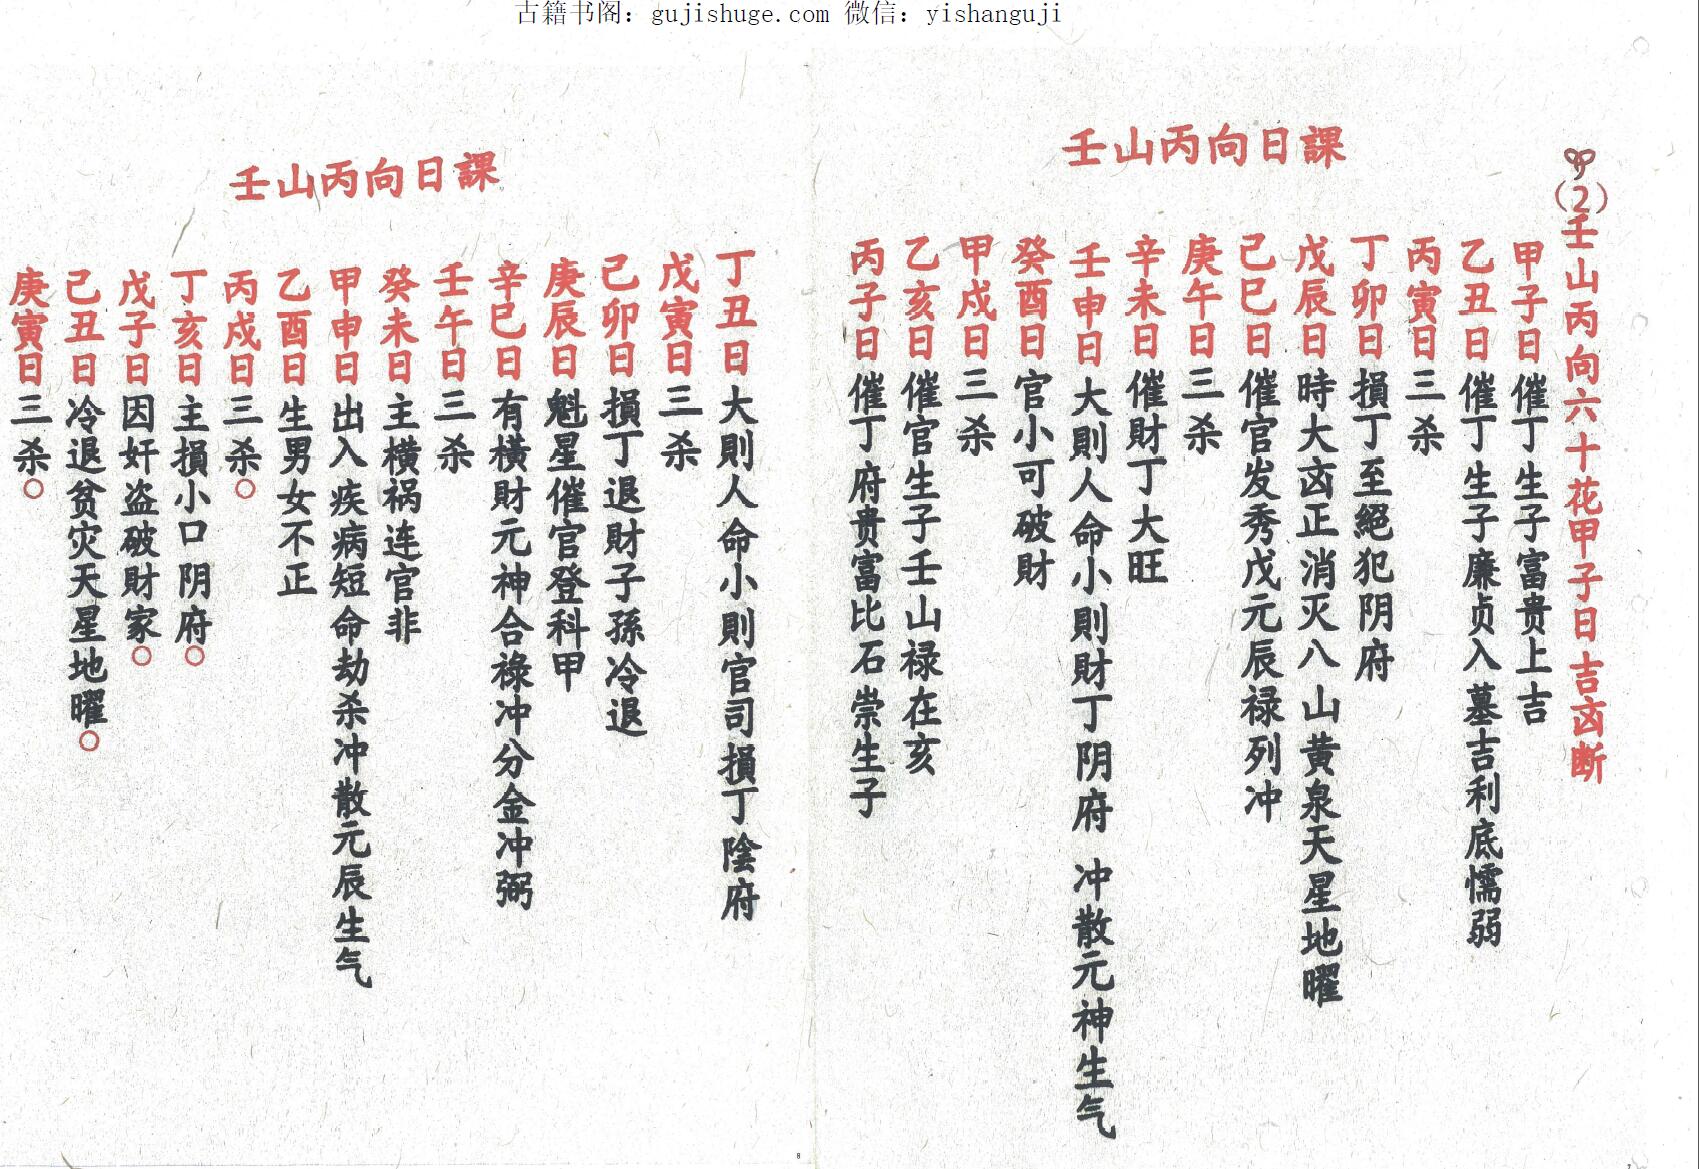 古籍书阁：gujishuge.com 微信：yishanguji
壬山丙向日課
（2）壬山丙向六十花甲子日吉凶断
甲子日催丁生子富贵上吉
乙丑日催丁生子廉贞入墓吉利底懦弱
丙寅日三杀
丁卯日損丁至絕犯阴府
戊辰日時大凶正消灭八山黄泉天星地曜
己巳日催官发秀戊元辰禄列冲
庚午日三杀
辛未日催財丁大旺
壬申日大則人命小則財丁阴府 冲散元神生气
癸酉日官小可破財
甲戌日三杀
乙亥日催官生子壬山禄在亥
丙子日催丁府贵富比石崇生子
壬山丙向日課
丁丑日大則人命小則官司損丁陰府
戊寅日三杀
己卯日損丁退財子孫冷退
庚辰日魁星催官登科甲
辛巳日有橫財元神合祿冲分金冲弼
壬午日三杀
癸未日主横祸连官非
甲申日出入疾病短命劫杀冲散元辰生气
乙酉日生男女不正
丙戌日三杀○
丁亥日主損小口阴府○
戊子日因奸盗破財家○
己丑日冷退贫灾天星地曜○
庚寅日三杀○
8
7